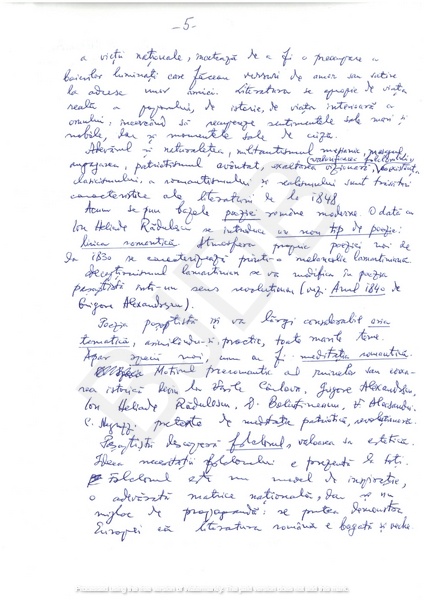 - 5 -
a vieții naționale, încetează de a fi o preocupare a
boierilor luminați care făceau versuri de amor sau satire
la adresa unor amici. Literatura se apropie de viața
reală a poporului, de istorie, de viața interioară a
omului, încercând să recupereze sentimentele sale mari și
nobile, dar și momentele sale de criză.
Adevărul și naturalețea, militantismul mesianic, mesajul
(valorificarea folclorului)
angajarea, patriotismul avântat, exaltarea vizionară,
clasicismului, a romantismului și realismului sunt trăsături
caracteristice ale literaturii de la 1848.
Acum se pun bazele poeziei române moderne. O dată cu
Ion Heliade Rădulescu se introduce un nou tip de poezie:
lirica romantică. Atmosfera proprie poeziei noi de
la 1830 se caracterizează printr-o melancolie lamartiniană.
Descepționismul lamartinian se va modifica în poezia
pașoptistă într-un sens revoluționar (vezi Anul 1840 de
Grigore Alexandrescu).
Poezia pașoptistă își va lărgi considerabil aria
tematică, asimilându-și, practic, toate marile teme.
Apar specii noi, cum ar fi meditația romantică.
Motivul preromantic al ruinelor sau evoca-
rea istorică devin la Vasile Cârlova, Grigore Alexandrescu,
Ion Heliade Rădulescu, D. Bolintineanu, V. Alecsandri
C. Negruzzi pretexte de meditație patriotică, revoluționară.
Pașoptiștii descoperă folclorul, valoarea sa estetică.
Ideea necesității folclorului e prezentă la toți.
Folclorul este un model de inspirație,
o adevărată matrice națională, dar și un
mijloc de propagandă: se putea demonstra
Europei că literatura română e bogată și veche.